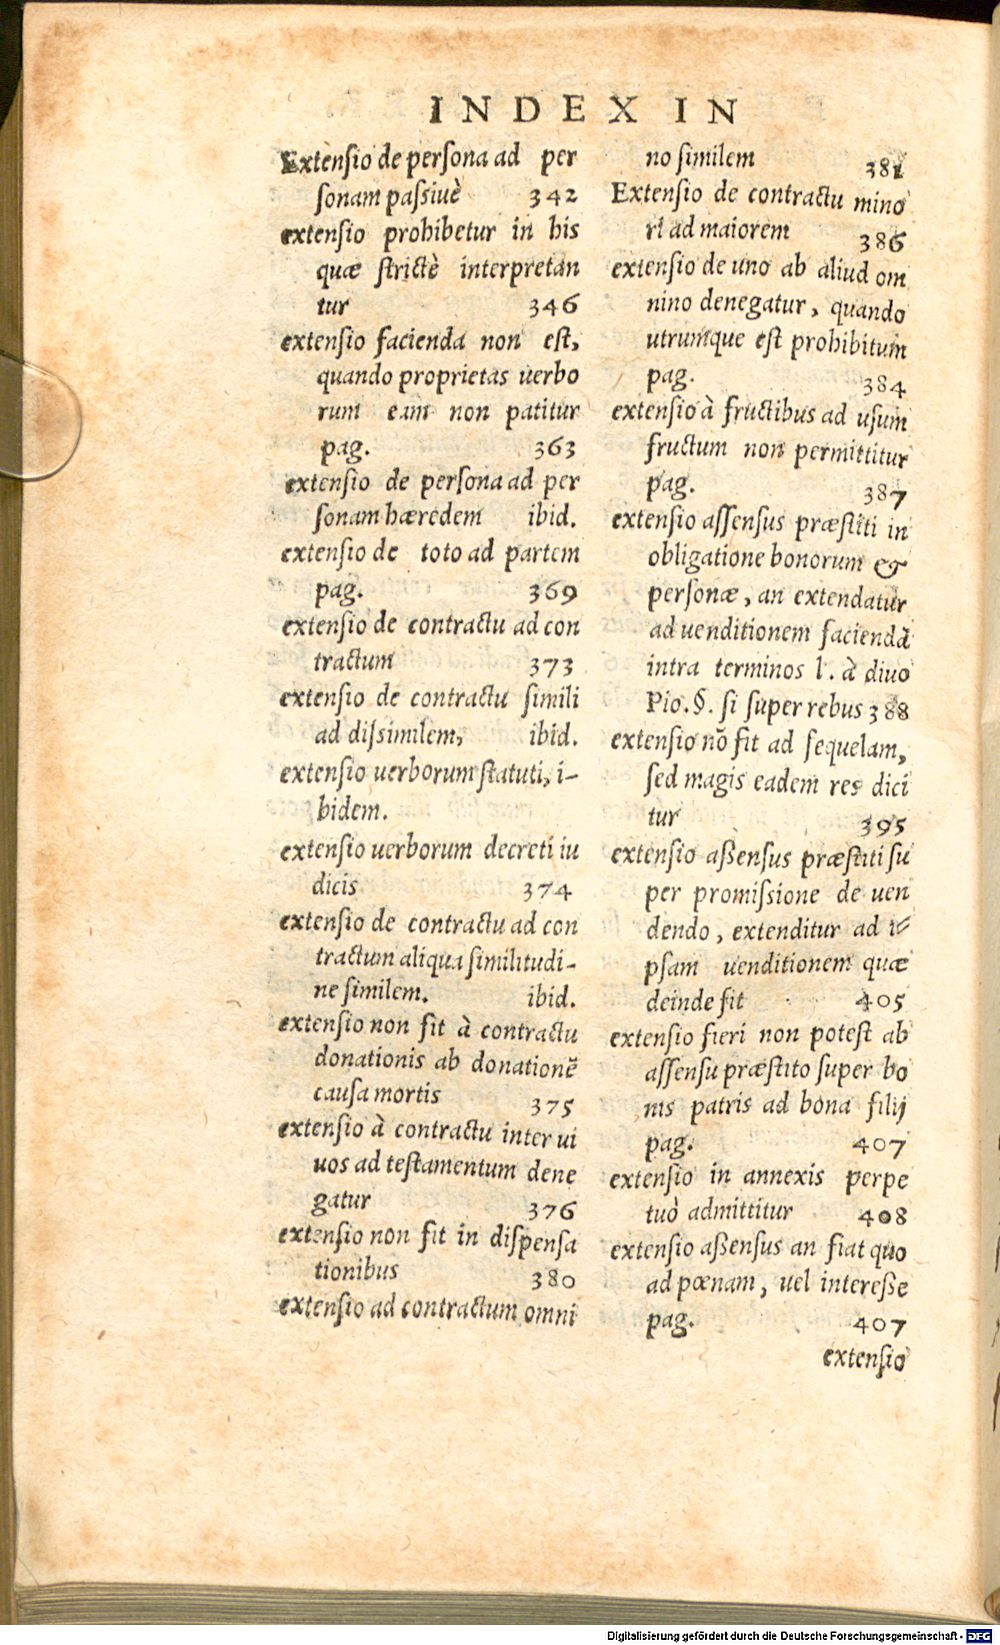 INDEX IN
Extensio de persona ad per
sonam passiuè 342
extensio prohibetur in his
quæ strictè interpretan
tur 346
extensio facienda non est,
quando proprietas uerbo
rum eam non patitur
pag. 363
extensio de persona ad per
sonam hæredem ibid.
extensio de toto ad partem
pag. 369
extensio de contractu ad con
tractum 373
extensio de contractu simili
ad dissimilem, ibid.
extensio uerborum statuti, i-
bidem.
extensio uerborum decreti iu
dicis 374
extensio de contractu ad con
tractum aliqua similitudi-
ne similem. ibid.
extensio non fit à contractu
donationis ab donationẽ
causa mortis 375
extensio à contractu inter ui
uos ad testamentum dene
gatur 376
extensio non fit in dispensa
tionibus 380
extensio ad contractum omni
no similem 381
Extensio de contractu mino
ri ad maiorem 386
extensio de uno ab aliud om
nino denegatur, quando
utrumque est prohibitum
pag. 384
extensio à fructibus ad usum
fructum non permittitur
pag. 387
extensio assensus præstiti in
obligatione bonorum &
personæ, an extendatur
ad uenditionem faciendã
intra terminos l. à diuo
Pio. §. si super rebus 388
extensio nõ fit ad sequelam,
sed magis eadem res dici
tur 395
extensio aßensus præstiti su
per promissione de uen
dendo, extenditur ad i-
psam uenditionem quæ
deinde fit 405
extensio fieri non potest ab
assensu præstito super bo
nis patris ad bona filij
pag. 407
extensio in annexis perpe
tuò admittitur 408
extensio aßensus an fiat quo
ad pœnam, uel intereße
pag. 407
extensio
Digitalisierung gefördert durch die Deutsche Forschungsgemeinschaft - DFG